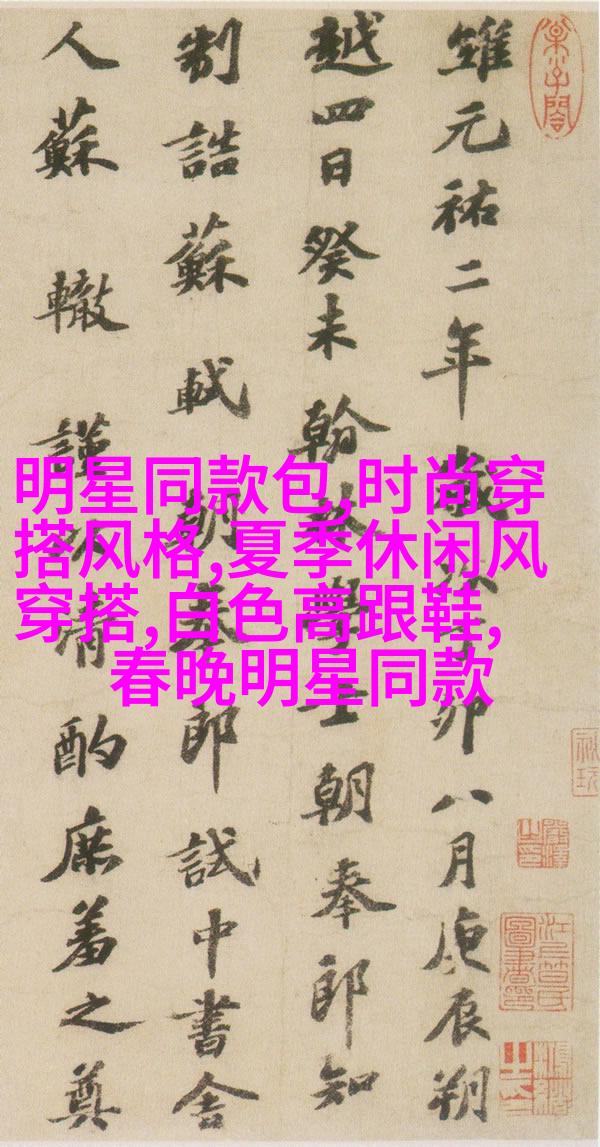 維元祐二年歲次丁卯八月庚辰朔
越四日癸未翰林學士朝奉郎知
制誥蘇軾朝奉郎試中書舍
人蘇轍謹以清酌庶羞之奠
明星同款包,时尚穿
搭风格,夏季休闲风
穿搭,白色高跟鞋,
春晚明星同款